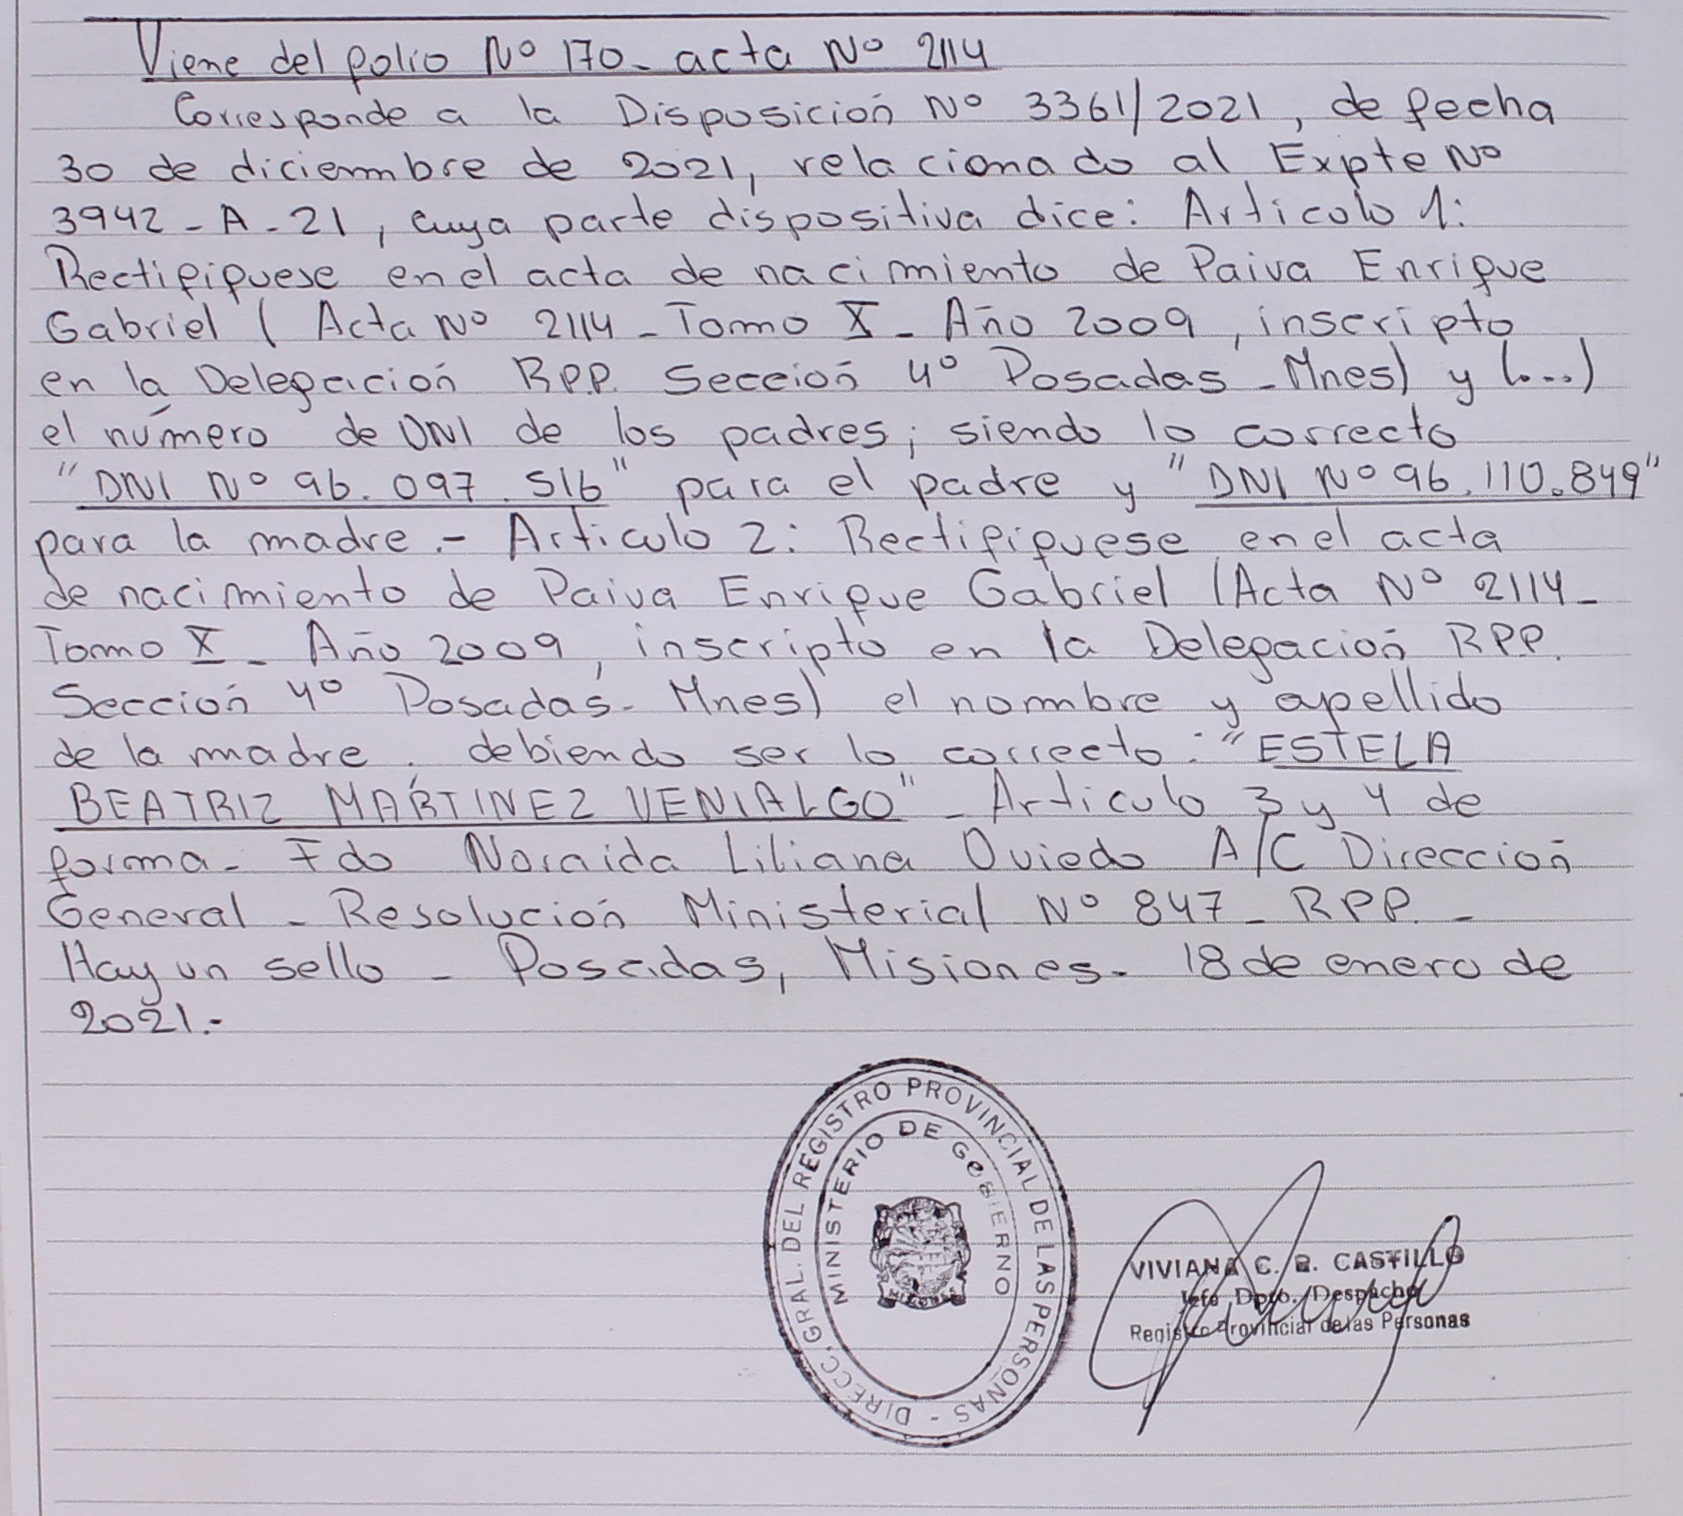 Viene del folio Nº 170 - acta Nº 2114
Corresponde a la Disposición Nº 3361/2021, de fecha
30 de diciembre de 2021, relacionado al Expte Nº
3942 - A - 21, cuya parte dispositiva dice: Articulo 1:
Rectifiquese en el acta de nacimiento de Paiva Enrique
Gabriel ( Acta Nº 2114 - Tomo X - Año 2009, inscripto
en la Delegación RPP. Sección 4º Posadas - Mnes) y (...)
el número de DNI de los padres; siendo lo correcto
"DNI Nº 96.097.516" para el padre y "DNI Nº 96.110.849"
para la madre.- Articulo 2: Rectifiquese en el acta
de nacimiento de Paiva Enrique Gabriel (Acta Nº 2114 -
Tomo X - Año 2009, inscripto en la Delegación RPP.
Sección 4º Posadas - Mnes) el nombre y apellido
de la madre. debiendo ser lo correcto: "ESTELA
BEATRIZ MARTINEZ VENIALGO" - Articulo 3 y 4 de
forma - Fdo Noraida Liliana Oviedo A/C Dirección
General - Resolución Ministerial Nº 847 - RPP. -
Hay un sello - Posadas, Misiones - 18 de enero de
2021.-
DIRECC. GRAL. DEL REGISTRO PROVINCIAL DE LAS PERSONAS -
MINISTERIO DE GOBIERNO
MISIONES
VIVIANA C. B. CASTILLO
Jefe Dpto. Despacho
Registro Provincial de las Personas